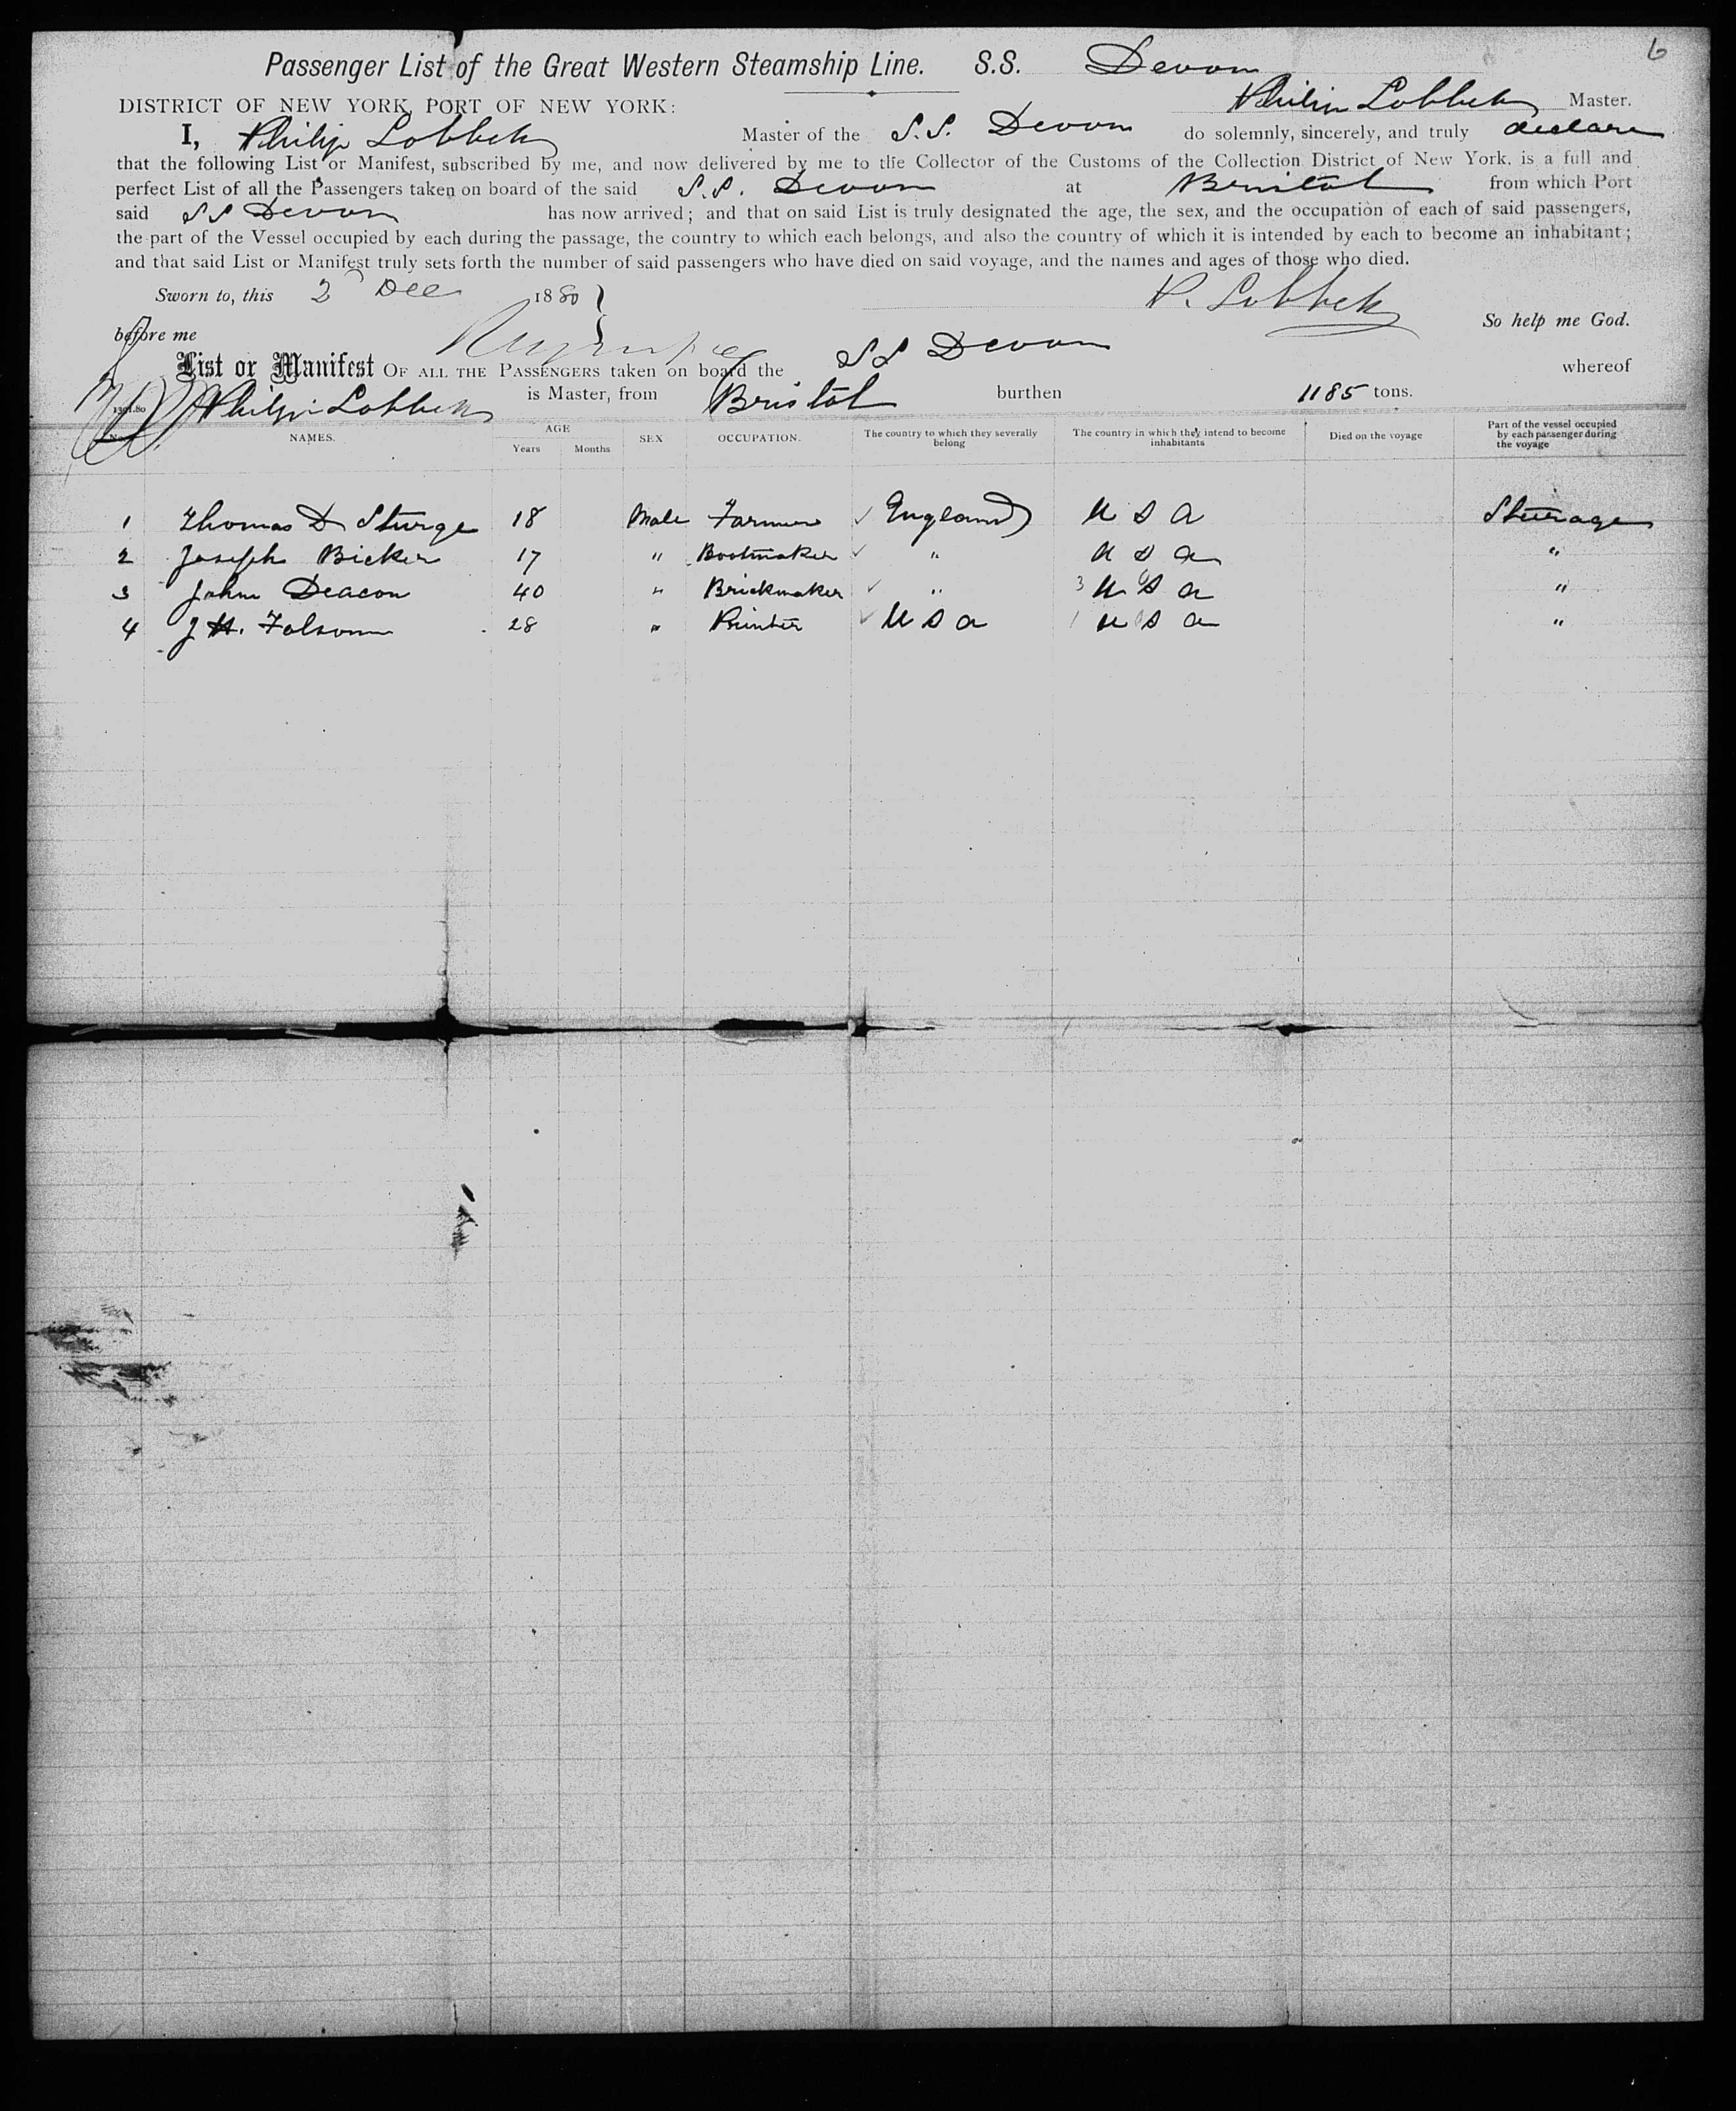 6
Passenger List of the Great Western Steamship Line. S.S. Devon
DISTRICT OF NEW YORK, PORT OF NEW YORK: Philip Lobbek Master.
I, Philip Lobbek Master of the S.S. Devon do solemnly, sincerely, and truly declare
that the following List or Manifest, subscribed by me, and now delivered by me to the Collector of the Customs of the Collection District of New York, is a full and
perfect List of all the Passengers taken on board of the said S.S. Devon at Bristol from which Port
said SS Devon has now arrived; and that on said List is truly designated the age, the sex, and the occupation of each of said passengers,
the part of the Vessel occupied by each during the passage, the country to which each belongs, and also the country of which it is intended by each to become an inhabitant;
and that said List or Manifest truly sets forth the number of said passengers who have died on said voyage, and the names and ages of those who died.
Sworn to, this 2 Dec 1880 P. Lobbek
before me So help me God.
List or Manifest OF ALL THE PASSENGERS taken on board the SS Devon whereof
Philip Lobbek is Master, from Bristol burthen 1185 tons.
NAMES. AGE Years Months SEX OCCUPATION. The country to which they severally belong The country in which they intend to become inhabitants Died on the voyage Part of the vessel occupied by each passenger during the voyage
1 Thomas D Sturge 18 Male Farmer ✓ England U S A Steerage
2 Joseph Bicker 17 " Bootmaker ✓ " U S A "
3 John Deacon 40 " Brickmaker ✓ " 3 U S A "
4 J H. Folsom 28 " Printer ✓ U S A 1 U S A "